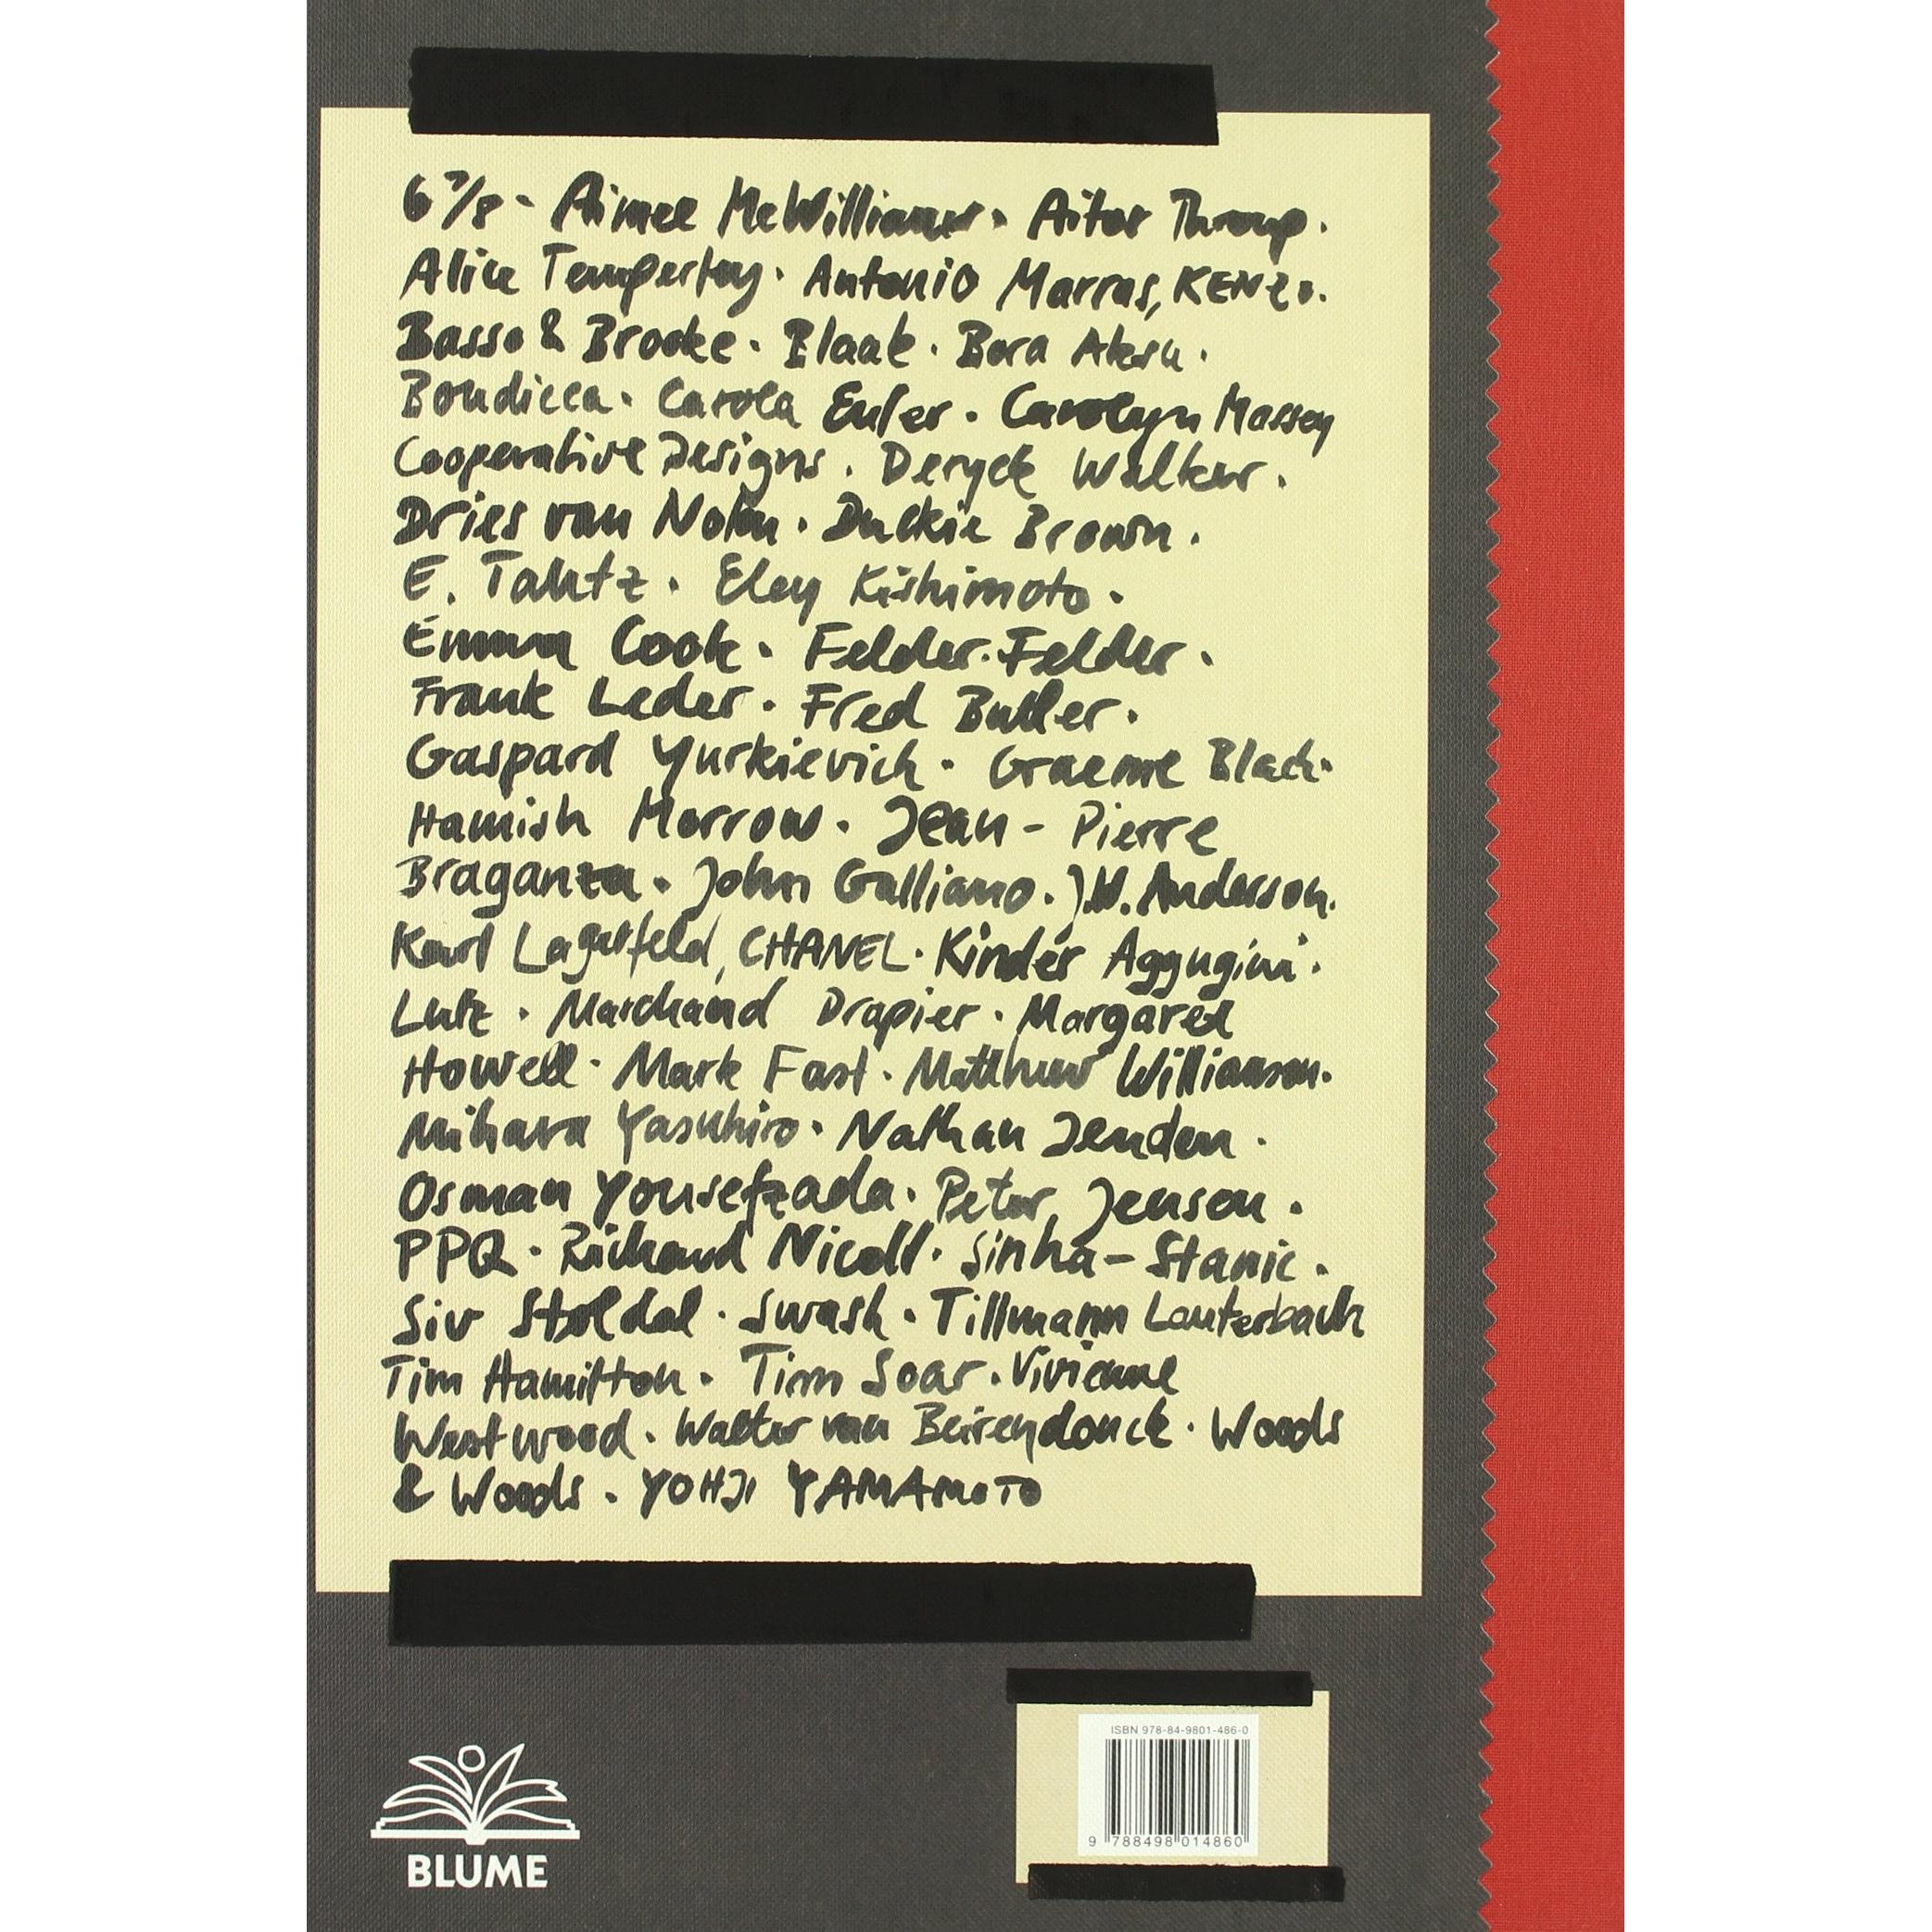 6 7/8 · Aimee McWilliams · Aitor Throup ·
Alice Temperley · Antonio Marras, KENZO ·
Basso & Brooke · Blaak · Bora Aksu ·
Boudicca · Carola Euler · Carolyn Massey
Cooperative Designs · Deryck Walker ·
Dries van Noten · Duckie Brown ·
E. Tautz · Eley Kishimoto ·
Emma Cook · Felder · Felder ·
Frank Leder · Fred Butler ·
Gaspard Yurkievich · Graeme Black ·
Hamish Morrow · Jean-Pierre
Braganza · John Galliano · J.W. Anderson.
Karl Lagerfeld, CHANEL · Kinder Aggugini ·
Lutz · Marchand Drapier · Margaret
Howell · Mark Fast · Matthew Williamson ·
Mihara Yasuhiro · Nathan Jenden ·
Osman Yousefzada · Peter Jensen ·
PPQ · Richard Nicoll · Sinha-Stanic ·
Siv Stoldal · Swash · Tillmann Lauterbach
Tim Hamilton · Tim Soar · Vivienne
Westwood · Walter van Beirendonck · Woods
& Woods · YOHJI YAMAMOTO
ISBN 978-84-9801-486-0
9 788498 014860
BLUME